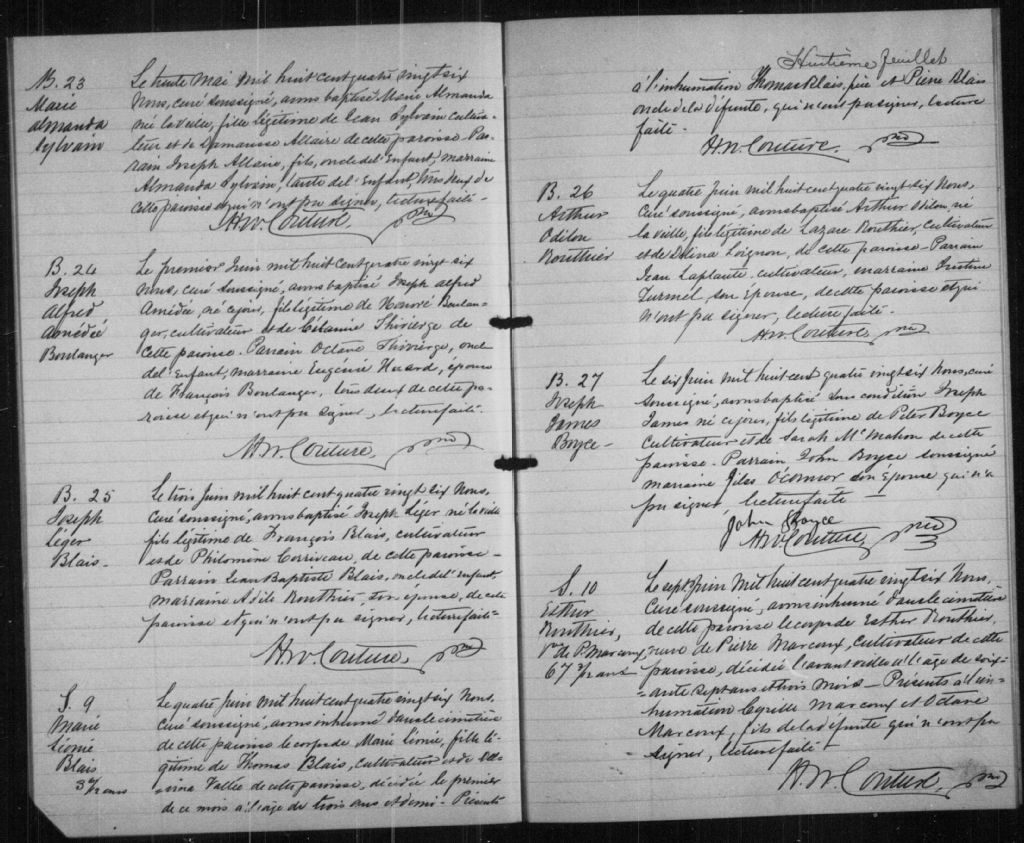 B. 23
Marie
Almanda
Sylvain
Le trente Mai mil huit cent quatre vingt six
Nous, curé soussigné, avons baptisé Marie Almanda
né la veille, fille légitime de Jean Sylvain Cultiva-
teur et de Damarisse Allaire de cette paroisse Par-
rain Joseph Allaire, fils, oncle del'Enfant, marraine
Almanda Sylvain, tante del'Enfant, tous deux de
cette paroisse et qui n'ont pu signer, lecture faite.
H.W. Couture, ptre
B. 24
Joseph
Alfred
Amédée
Boulanger
Le premier Juin mil huit cent quatre vingt six
Nous, curé soussigné, avons baptisé Joseph Alfred
Amédée, né ce jour, fils légitime de Honoré Boulan-
ger, cultivateur et de Célanire Thivierge de
cette paroisse. Parrain Octave Thivierge, oncle
del'Enfant, marraine Eugénie Huard, épouse
de François Boulanger, tous deux de cette pa-
roisse et qui n'ont pu signer, lecture faite.
H.W. Couture, ptre
B. 25
Joseph
Léger
Blais-
Le trois Juin mil huit cent quatre vingt six Nous,
Curé soussigné, avons baptisé Joseph Léger né la veille
fils légitime de François Blais, cultivateur
et de Philomène Corriveau, de cette paroisse-
Parrain Jean Baptiste Blais, oncle del'enfant,
marraine Adèle Routhier, son épouse, de cette
paroisse et qui n'ont pu signer, lecture faite-
H.W. Couture, ptre
S. 9
Marie
Léonie
Blais
3½ ans
Le quatre Juin mil huit cent quatre vingt six Nous,
Curé soussigné, avons inhumé dans le cimetière
de cette paroisse le corps de Marie Léonie, fille lé-
gitime de Thomas Blais, Cultivateur et de
Vallée de cette paroisse, décédée le premier
de ce mois à l'age de trois ans et demi- Présents
Huitième feuillet
à l'inhumation Thomas Blais, père et Pierre Blais
oncle de la défunte, qui n'ont pu signer, lecture
faite.
H.W. Couture, ptre
B. 26
Arthur
Odilon
Routhier
Le quatre Juin mil huit cent quatre vingt six Nous,
Curé soussigné, avons baptisé Arthur Odilon, né
la veille, fils légitime de Lazare Routhier, cultivateur
et de Délina Loignon, de cette paroisse- Parrain
Jean Laplante cultivateur, marraine
Turmel son épouse, de cette paroisse et qui
n'ont pu signer, lecture faite.
H.W. Couture, ptre
B. 27
Joseph
James
Boyce-
Le six Juin mil huit cent quatre vingt six Nous, curé
soussigné, avons baptisé sous condition Joseph
James né ce jour, fils légitime de Peter Boyce
Cultivateur et de Sarah McMahon de cette
paroisse. Parrain John Boyce soussigné
marraine Giles O'Connor son épouse qui n'a
pu signer, lecture faite-
John Boyce
H.W. Couture, ptre
S. 10
Esther
Routhier,
Vve de P. Marcoux
67 ¼ ans
Le sept Juin mil huit cent quatre vingt six Nous,
Curé soussigné, avons inhumé dans le cimetière
de cette paroisse le corps de Esther Routhier,
veuve de Pierre Marcoux, Cultivateur de cette
paroisse, décédée l'avant veille à l'age de soix-
ante sept ans et trois mois- Présents à l'in-
humation Cyrille Marcoux et Octave
Marcoux, fils de la défunte qui n'ont pu
signer, lecture faite-
H.W. Couture, ptre